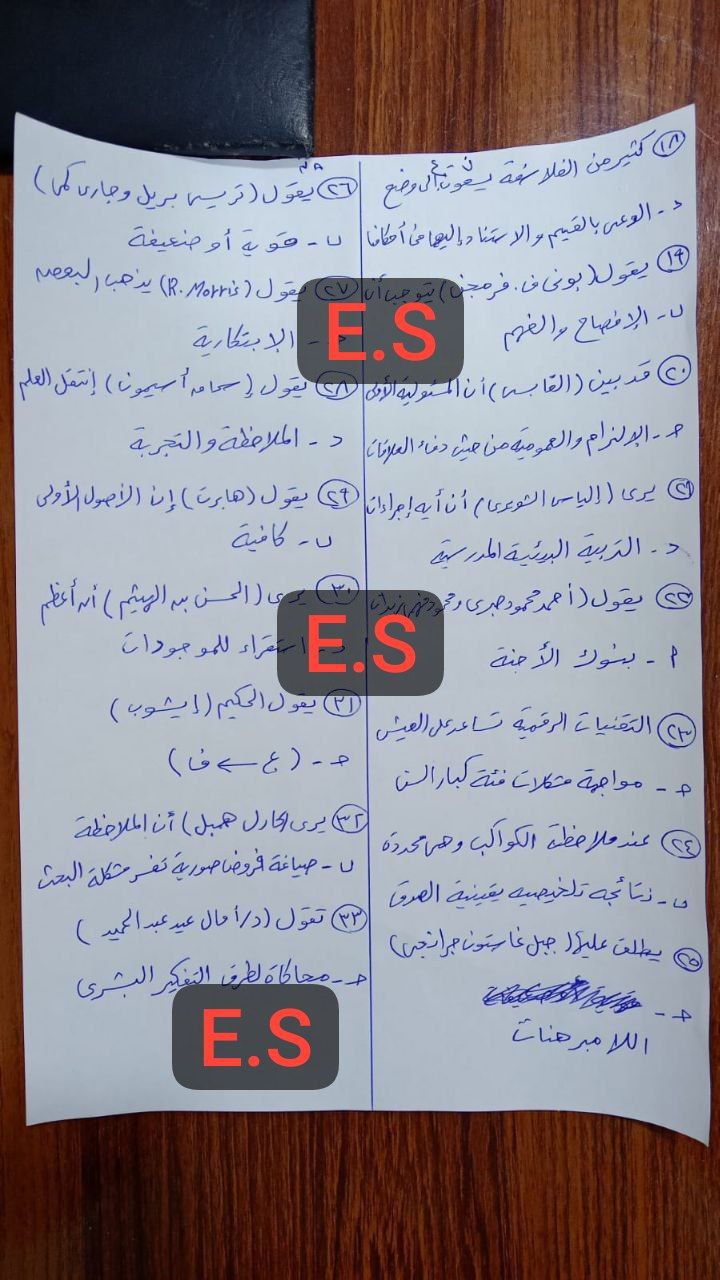 ١٨ كثير من الفلاسفة يسعون إلى وضع
د - الوعى بالقيم والاستناد إليها فى أحكامنا
١٩ يقول (بونى ف. فرمجن) يتوجب أن
ب - الإفصاح والفهم
٢٠ قد بين (القابسى) أن المسئولية الأولى
ح - الإلزام والعمومية من حيث دفء العلاقات
٢١ يرى (إلياس الشويرى) أن أية إجراءات
د - التربية البيئية المدرسية
٢٢ يقول (أحمد محمود صبرى ومحمود فهمى زيدان
أ - بنوك الأجنة
٢٣ التقنيات الرقمية تساعد على العيش
ح - مواجهة مشكلات فئة كبار السن
٢٤ عند ملاحظة الكواكب وهى محددة
ب - نتائجه تلخيصيه يقينية الصدق
٢٥ يطلق عليها (جبل غاستون جرانجى)
ح -
اللا مبرهنات
٢٦ يقول (تريسى بريل وجارى كمى)
ب - قوية أو ضعيفة
٢٧ يقول (R. Morris) يذهب البعض
الإبتكارية
٢٨ يقول (إسحاق أسيمون) إنتقل العلم
د - الملاحظة والتجربة
٢٩ يقول (هابرت) إن الأصول الأولى
ب - كافية
٣٠ يرى (الحسن بن الهيثم) أن أعظم
د - استقراء للموجودات
٣١ يقول الحكيم (إيشوب)
ح - (ع ← ف)
٣٢ يرى (كارل همبل) أن الملاحظة
ب - صياغة فروض صورية تفسر مشكلة البحث
٣٣ تقول (د/أمال عيد عبد الحميد)
ح - محاكاة لطرق التفكير البشرى
E.S
E.S
E.S